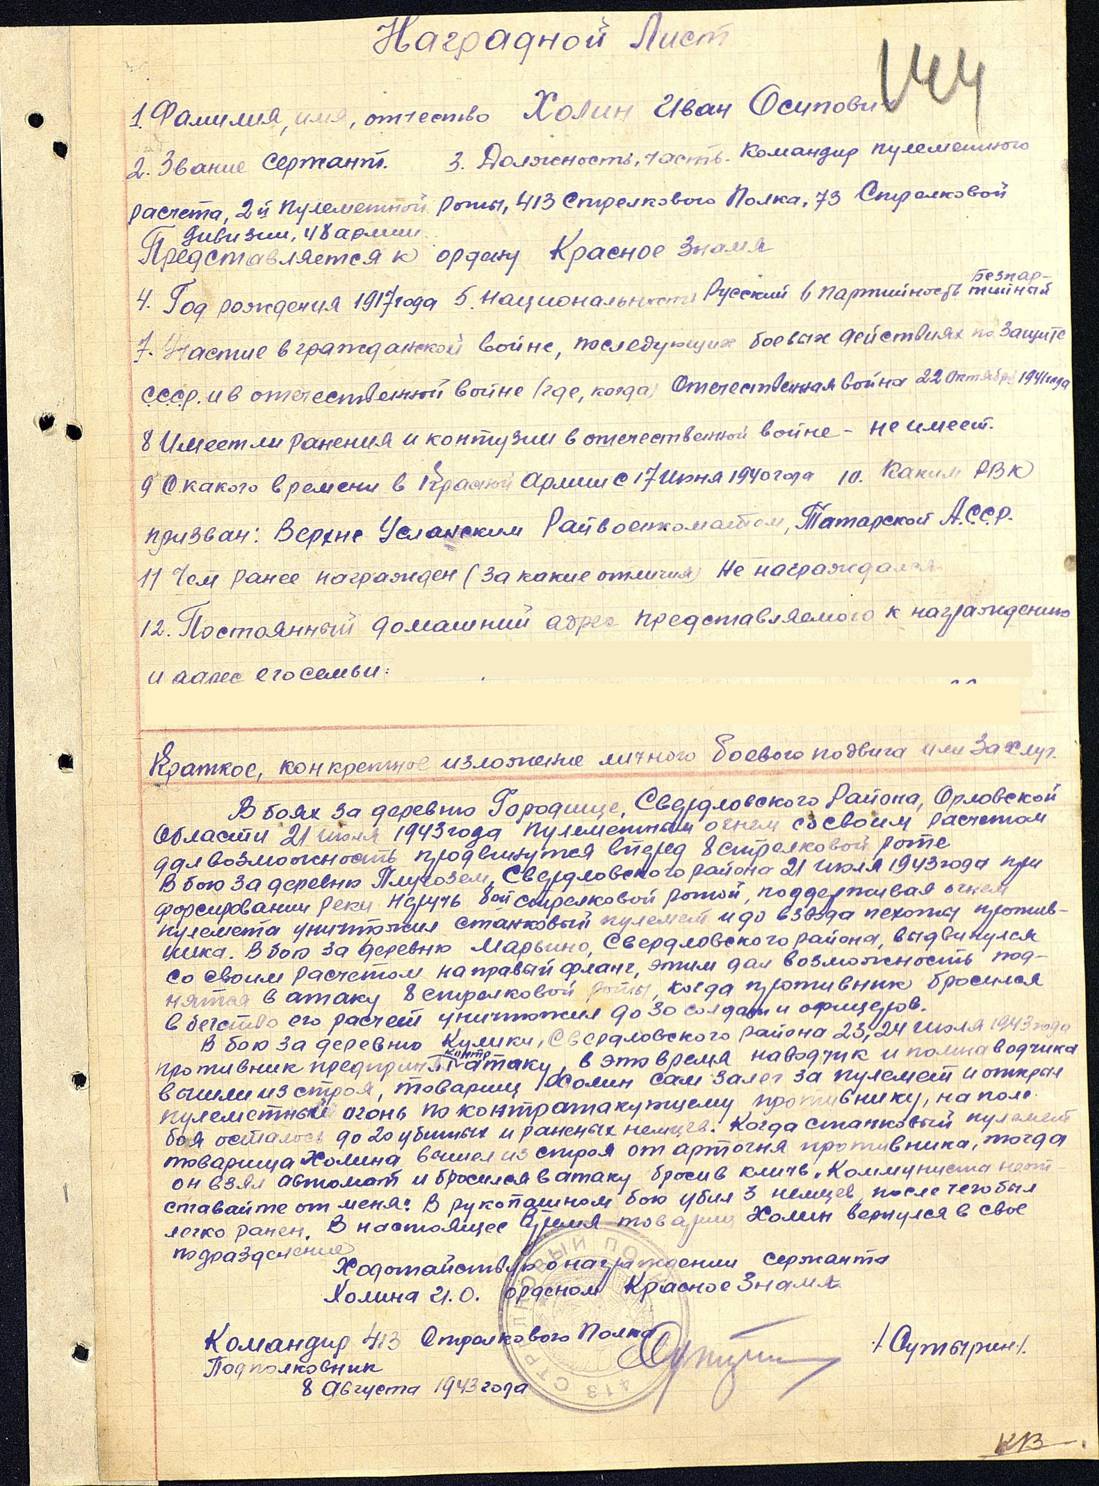 Наградной Лист
144
1. Фамилия, имя, отчество Холин Иван Осипович
2. Звание Сержант. 3. Должность, часть. Командир пулеметного
расчета, 2й Пулеметной роты, 413 Стрелкового Полка, 73 Стрелковой
дивизии, 48 армии.
Представляется к ордену Красное Знамя
4. Год рождения 1917 года 5. Национальность Русский 6 Партийность Беспар-
тийный
7. Участие в гражданской войне, последующих боевых действиях по защите
СССР. и в отечественной войне (где, когда) Отечественная война 22 Октября 1941 года
8 Имеет ли ранения и контузии в отечественной войне - не имеет.
9 С какого времени в Красной Армии С 17 Июня 1940 года 10. Каким РВК
призван: Верхне Услонским Райвоенкоматом, Татарской А.С.С.Р.
11 Чем ранее награжден (за какие отличия) Не награждался
12. Постоянный домашний адрес представляемого к награждению
и адрес его семьи:
Краткое, конкретное изложение личного боевого подвига или заслуг.
В боях за деревню Городище, Свердловского района, Орловской
Области 21 июля 1943 года пулеметным огнем со своим расчетом
дал возможность продвинутся вперед 8 стрелковой роте
В бою за деревню Плугозем, Свердловского района 21 июля 1943 года при
форсировании реки Неручь 8ой стрелковой ротой, поддерживая огнем
пулемета уничтожил станковый пулемет и до взвода пехоты против-
ника. В бою за деревню Марьино, Свердловского района, выдвинулся
со своим расчетом на правый фланг, этим дал возможность под-
нятся в атаку 8 стрелковой роты, когда противник бросился
в бегство его расчет уничтожил до 30 солдат и офицеров.
В бою за деревню Кулики, Свердловского района 23, 24 июля 1943 года
противник предпринял контратаку, в это время наводчик и помнаводчика
вышли из строя, товарищ Холин сам залег за пулемет и открыл
пулеметный огонь по контратакующему противнику, на поле
боя осталось до 20 убитых и раненых немцев. Когда станковый пулемет
товарища Холина вышел из строя от артогня противника, тогда
он взял автомат и бросился в атаку бросив клич, "Коммунисты не от
ставайте от меня". В рукопашном бою убил 3 немцев, после чего был
легко ранен. В настоящее время товарищ Холин вернулся в свое
подразделение
Ходотайствую о награждении сержанта
Холина И.О. орденом Красное Знамя
Командир 413 Стрелкового Полка
Подполковник /Сутырин/.
8 Августа 1943 года
413 СТРЕЛКОВЫЙ ПОЛ
КВ